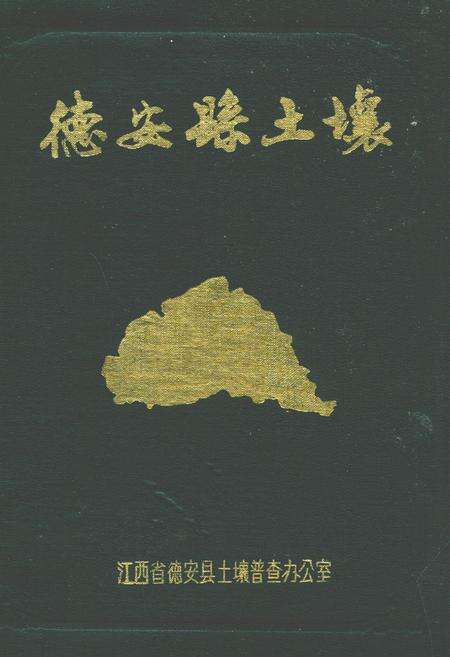 德安縣土壤
江西省德安县土壤普查办公室